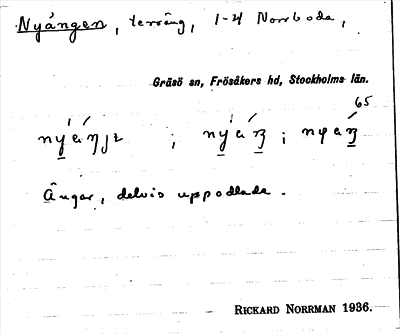 Nyängen, terräng, 1-4 Norrboda,
Gräsö sn, Frösåkers hd, Stockholms län.
65
Ängar, delvis uppodlade.
RICKARD NORRMAN 1936.